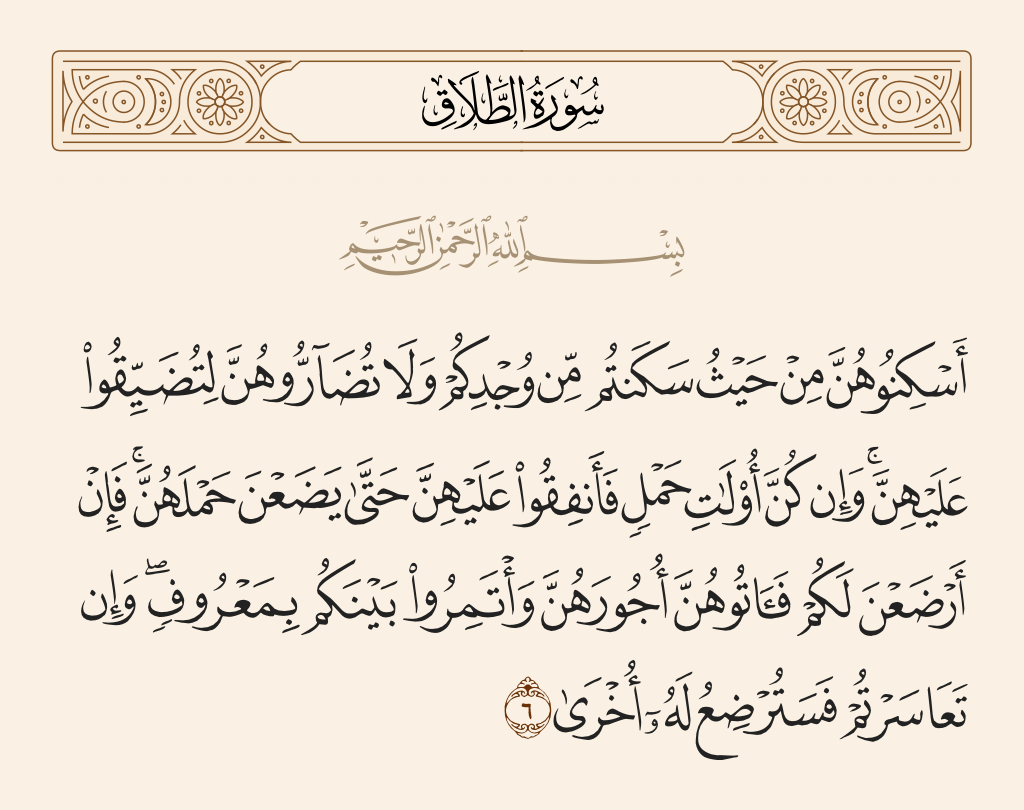 سُورَةُ الطَّلَاقِ
بِسْمِ ٱللَّهِ ٱلرَّحْمَٰنِ ٱلرَّحِيمِ
أَسْكِنُوهُنَّ مِنْ حَيْثُ سَكَنتُم مِّن وُجْدِكُمْ وَلَا تُضَآرُّوهُنَّ لِتُضَيِّقُوا۟
عَلَيْهِنَّ ۚ وَإِن كُنَّ أُو۟لَٰتِ حَمْلٍ فَأَنفِقُوا۟ عَلَيْهِنَّ حَتَّىٰ يَضَعْنَ حَمْلَهُنَّ ۚ فَإِنْ
أَرْضَعْنَ لَكُمْ فَـَٔاتُوهُنَّ أُجُورَهُنَّ وَأْتَمِرُوا۟ بَيْنَكُم بِمَعْرُوفٍ ۖ وَإِن
تَعَاسَرْتُمْ فَسَتُرْضِعُ لَهُۥٓ أُخْرَىٰ ٦